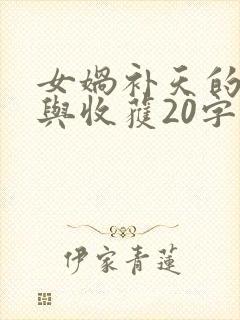 女媧补天的
與收获20字
伊家青蓮